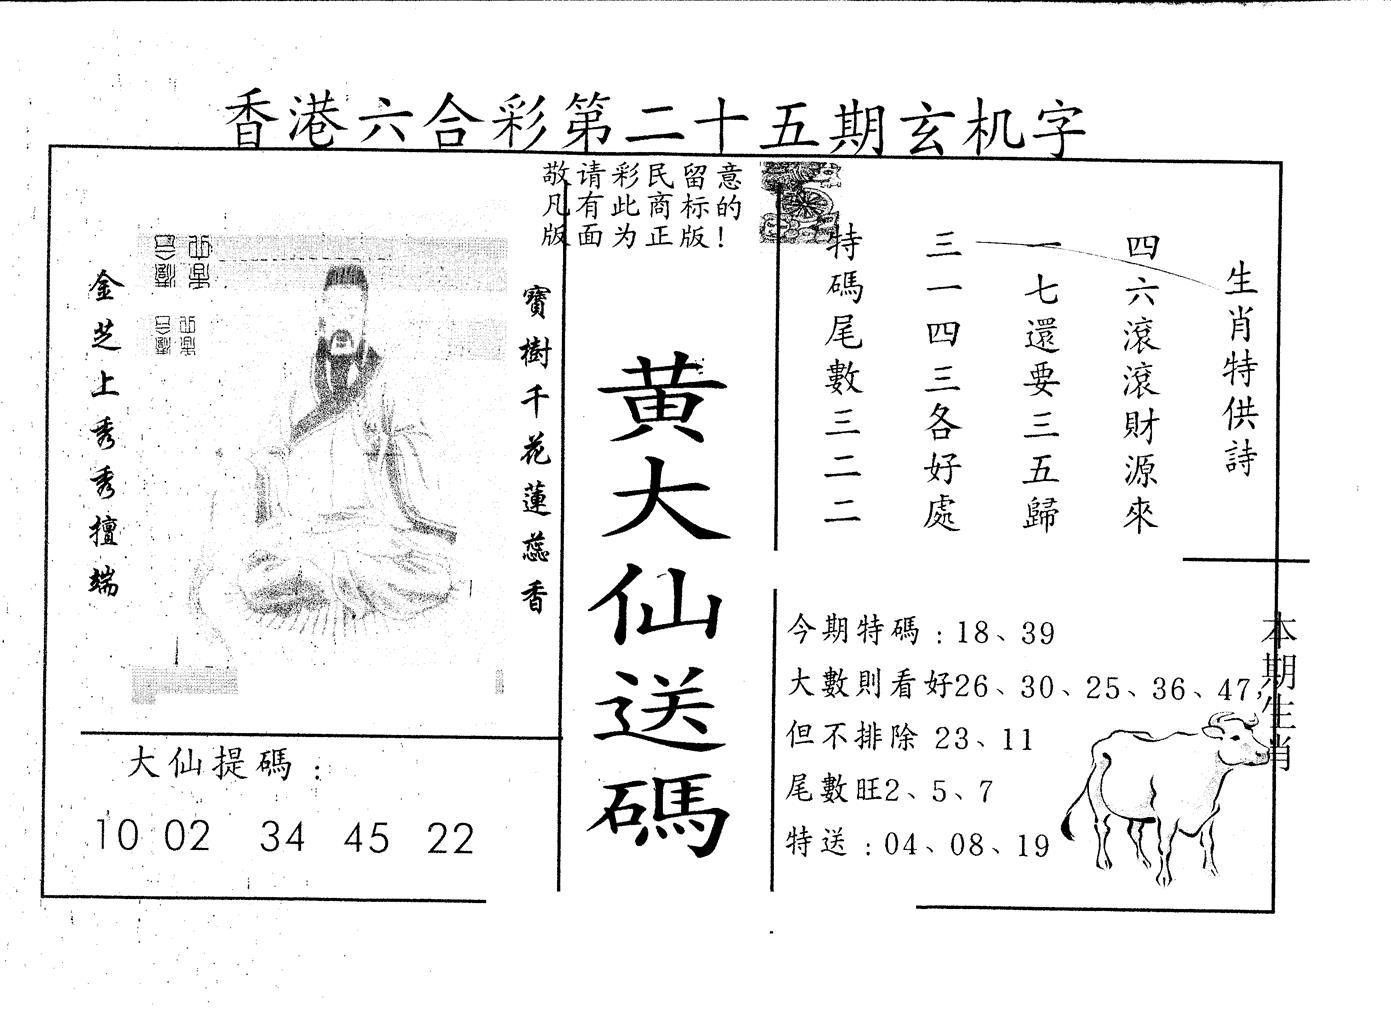 香港六合彩第二十五期玄机字
敬请彩民留意
凡有此商标的
版面为正版！
生肖特供詩
四六滾滾財源來
一七還要三五歸
三一四三各好處
特碼尾數三二二
寶樹千花蓮蕊香
金芝上秀秀擅端
黄大仙送碼
大仙提碼：
10 02 34 45 22
今期特碼：18、39
大數則看好26、30、25、36、47,
但不排除 23、11
尾數旺2、5、7
特送：04、08、19
本期生肖